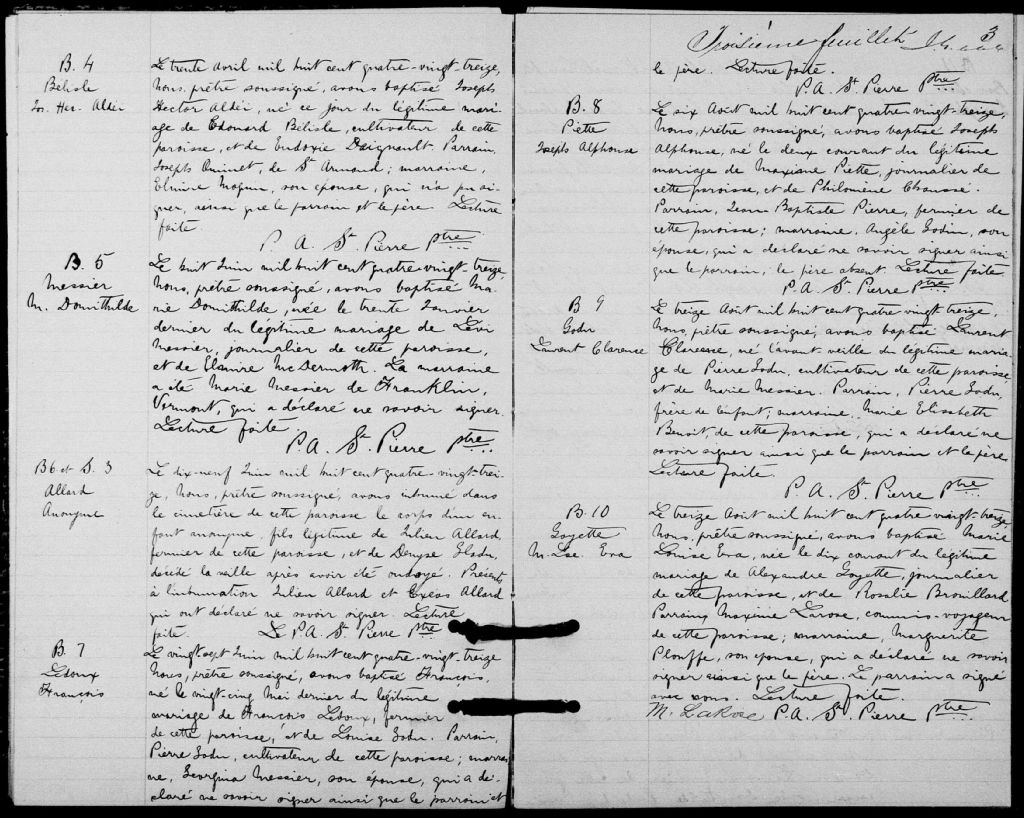 B. 4
Bélisle
Jos. Hec. Aldéi
Le trente avril mil huit cent quatre-vingt-treize,
nous, prêtre soussigné, avons baptisé Joseph
Hector Aldéi, né ce jour du légitime mari-
age de Edouard Bélisle, cultivateur de cette
paroisse, et de Eudoxie Daignault. Parrain,
Joseph Quinet, de St Armand; marraine,
Elmire, son épouse, qui n'a pu si-
gner, ainsi que le parrain et le père. Lecture
faite.
P. A. St Pierre Ptre
B. 5
Messier
M. Domithilde
Le huit Juin mil huit cent quatre-vingt-treize
Nous, prêtre soussigné, avons baptisé Ma-
rie Domithilde, née le trente Janvier
dernier du légitime mariage de Levi
Messier, journalier de cette paroisse,
et de Elmire McDermott. La marraine
a été Marie Messier de Franklin,
Vermont, qui a déclaré ne savoir signer.
Lecture faite.
P. A. St Pierre Ptre
B 6 et S. 3
Allard
Anonyme
Le dix-neuf Juin mil huit cent quatre-vingt-trei-
ze, Nous, prêtre soussigné, avons inhumé dans
le cimetière de cette paroisse le corps d'un en-
fant anonyme fils légitime de Julien Allard,
fermier de cette paroisse, et de Denyse,
décédé la veille après avoir été ondoyé. Présents
à l'inhumation Julien Allard et Allard
qui ont déclaré ne savoir signer. Lecture
faite. P. A. St Pierre Ptre
B. 7
Ledoux
François
Le vingt sept Juin mil huit cent quatre-vingt-treize
Nous, prêtre soussigné, avons baptisé François,
né le vingt-cinq Mai dernier du légitime
mariage de François Ledoux, fermier
de cette paroisse, et de Louise Godu. Parrain,
Pierre Godu, cultivateur de cette paroisse; marrai-
ne, Georgina Messier, son épouse, qui a dé-
claré ne savoir signer ainsi que le parrain et
Troisième feuillet 3
le père. Lecture faite.
P. A. St Pierre Ptre
B. 8
Piette
Joseph Alphonse
Le six Août mil huit cent quatre-vingt-treize,
Nous, prêtre soussigné, avons baptisé Joseph
Alphonse, né le deux courant du légitime
mariage de Maxime Piette, journalier de
cette paroisse, et de Philomène Chaussé.
Parrain, Jean-Baptiste Pierre, fermier de
cette paroisse; marraine, Angèle Godin, son
épouse, qui a déclaré ne savoir signer ainsi
que le parrain, le père absent. Lecture faite
P. A. St Pierre Ptre
B 9
Godu
Laurent Clarence
Le treize Août mil huit cent quatre vingt treize,
Nous, prêtre soussigné, avons baptisé Laurent
Clarence, né l'avant-veille du légitime maria-
ge de Pierre Godu, cultivateur de cette paroisse,
et de Marie Messier. Parrain, Pierre Godu,
frère de l'enfant; marraine Marie Elisabeth
Benoit, de cette paroisse, qui a déclaré ne
savoir signer ainsi que le parrain et le père
Lecture faite.
P. A. St Pierre Ptre
B. 10
Goyette
M-Lse Eva
Le treize Août mil huit cent quatre vingt-treize,
Nous, prêtre soussigné, avons baptisé Marie
Louise Eva, née le dix courant du légitime
mariage de Alexandre Goyette, journalier
de cette paroisse, et de Rosalie Brouillard
Parrain, Maxime Larose, commis-voyageur
de cette paroisse; marraine, Marguerite
Plouffe, son épouse, qui a déclaré ne savoir
signer ainsi que le père. Le parrain a signé
avec nous. Lecture faite.
M. LaRose P. A. St Pierre Ptre